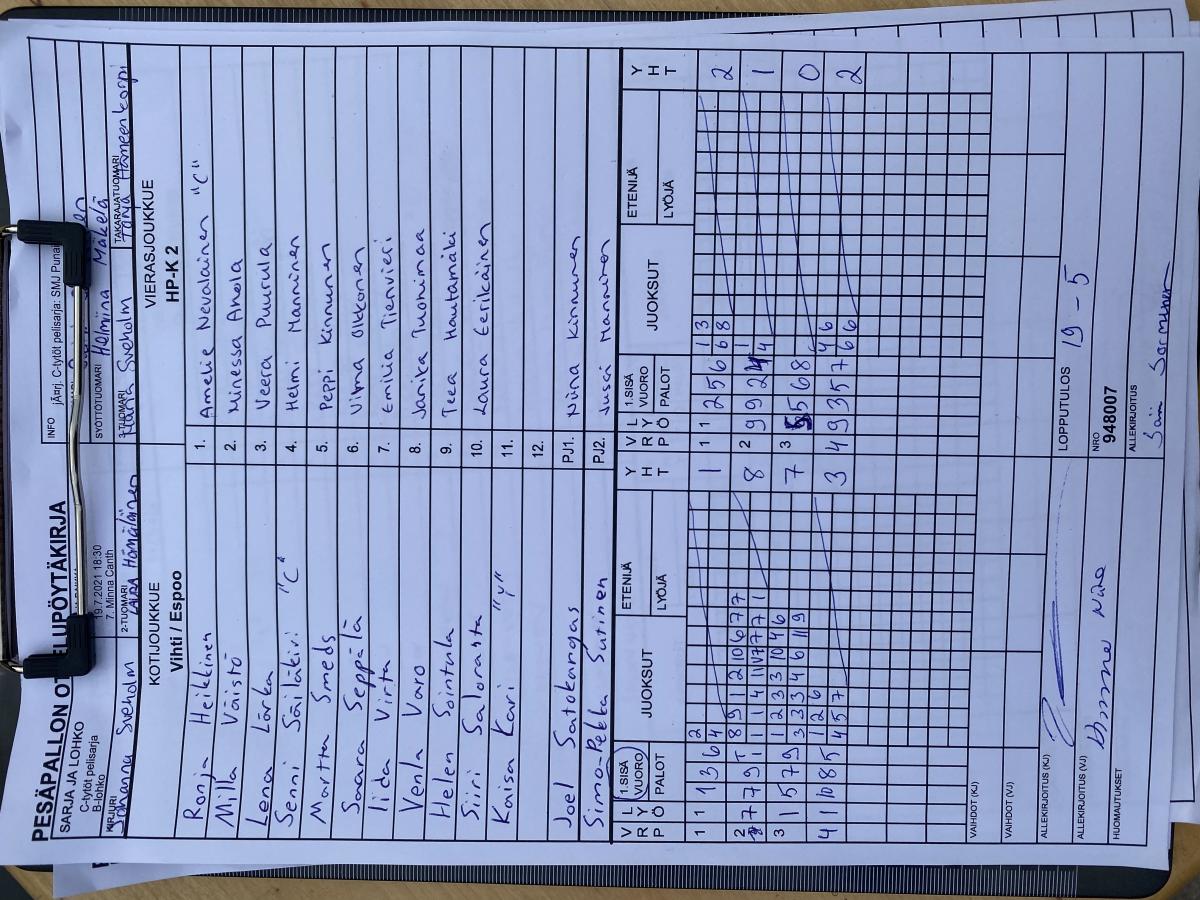 PESÄPALLON OTTELUPÖYTÄKIRJA
SARJA JA LOHKO
C-tytöt pelisarja
B-lohko
19.7.2021 18:30
7. Minna Canth
INFO
C-tytöt pelisarja: SMJ Puna
KIRJURI
Johanna Sveholm
2-TUOMARI
Laura Hämäläinen
SYÖTTÖTUOMARI
Helmiina Mäkelä
3-TUOMARI
Maria Sveholm
TAKARAJATUOMARI
Tanja Hämeenkorpi
KOTIJOUKKUE
Vihti / Espoo
VIERASJOUKKUE
HP-K 2
Ronja Heikkinen
1. Amelie Nevalainen "C"
Milla Väistö
2. Minessa Anola
Lena Lärka
3. Veera Puurula
Senni Säiläkivi "C"
4. Helmi Manninen
Martta Smeds
5. Peppi Kinnunen
Saara Seppälä
6. Vilma Olkkonen
Iida Virta
7. Emilia Tienvieri
Venla Varo
8. Janika Tuomimaa
Helen Sointula
9. Teea Hautamäki
Siiri Salorasta
10. Laura Eerikäinen
Kaisa Kari "Y"
11.
12.
Joel Satokangas
PJ1. Niina Kinnunen
Simo-Pekka Sutinen
PJ2. Jussi Manninen
V R P
L Y Ö
1.SISÄ VUORO
PALOT
JUOKSUT
ETENIJÄ
LYÖJÄ
Y H T
V R P
L Y Ö
1.SISÄ VUORO
PALOT
JUOKSUT
ETENIJÄ
LYÖJÄ
Y H T
1 1 1 3 6 2
4
1
1 1 2 5 6 1 3
6 8
2
2 7 7 9 1 8 9 1 2 10 6 7 7
1 1 4 11 1 7 7 7 1
8
2 9 9 2 4 1
4
1
3 1 5 7 9 1 2 3 3 10 4 6
3 3 3 4 6 11 9
7
3 5 5 6 8
0
4 1 10 8 5 1 2 6
4 5 7
3
4 9 3 5 7 4 6
6 6
2
VAIHDOT (KJ)
VAIHDOT (VJ)
ALLEKIRJOITUS (KJ)
LOPPUTULOS 19 - 5
ALLEKIRJOITUS (VJ)
NRO
948007
HUOMAUTUKSET
ALLEKIRJOITUS